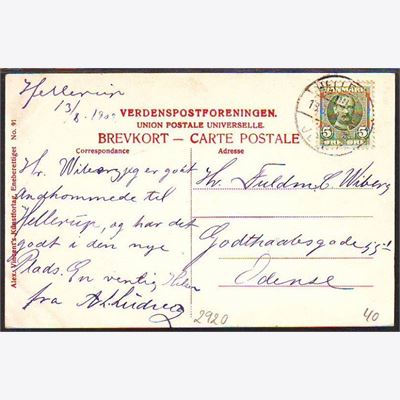 Hellerup
13/
8. 1909
VERDENSPOSTFORENINGEN.
UNION POSTALE UNIVERSELLE.
BREVKORT — CARTE POSTALE
Correspondance
Adresse
Hr. jeg er godt
andkommede til
Hellerup, og har det
godt i den nye
Plads. En venlig Hilsen
fra
Hr. Fuldm. C. Wiberg
Godthaabsgade
Odense
Alex Vincent's Kunstforlag, Eneberettiget No. 91
HELLERUP
DANMARK
5 5
ØRE ØRE
2920
40